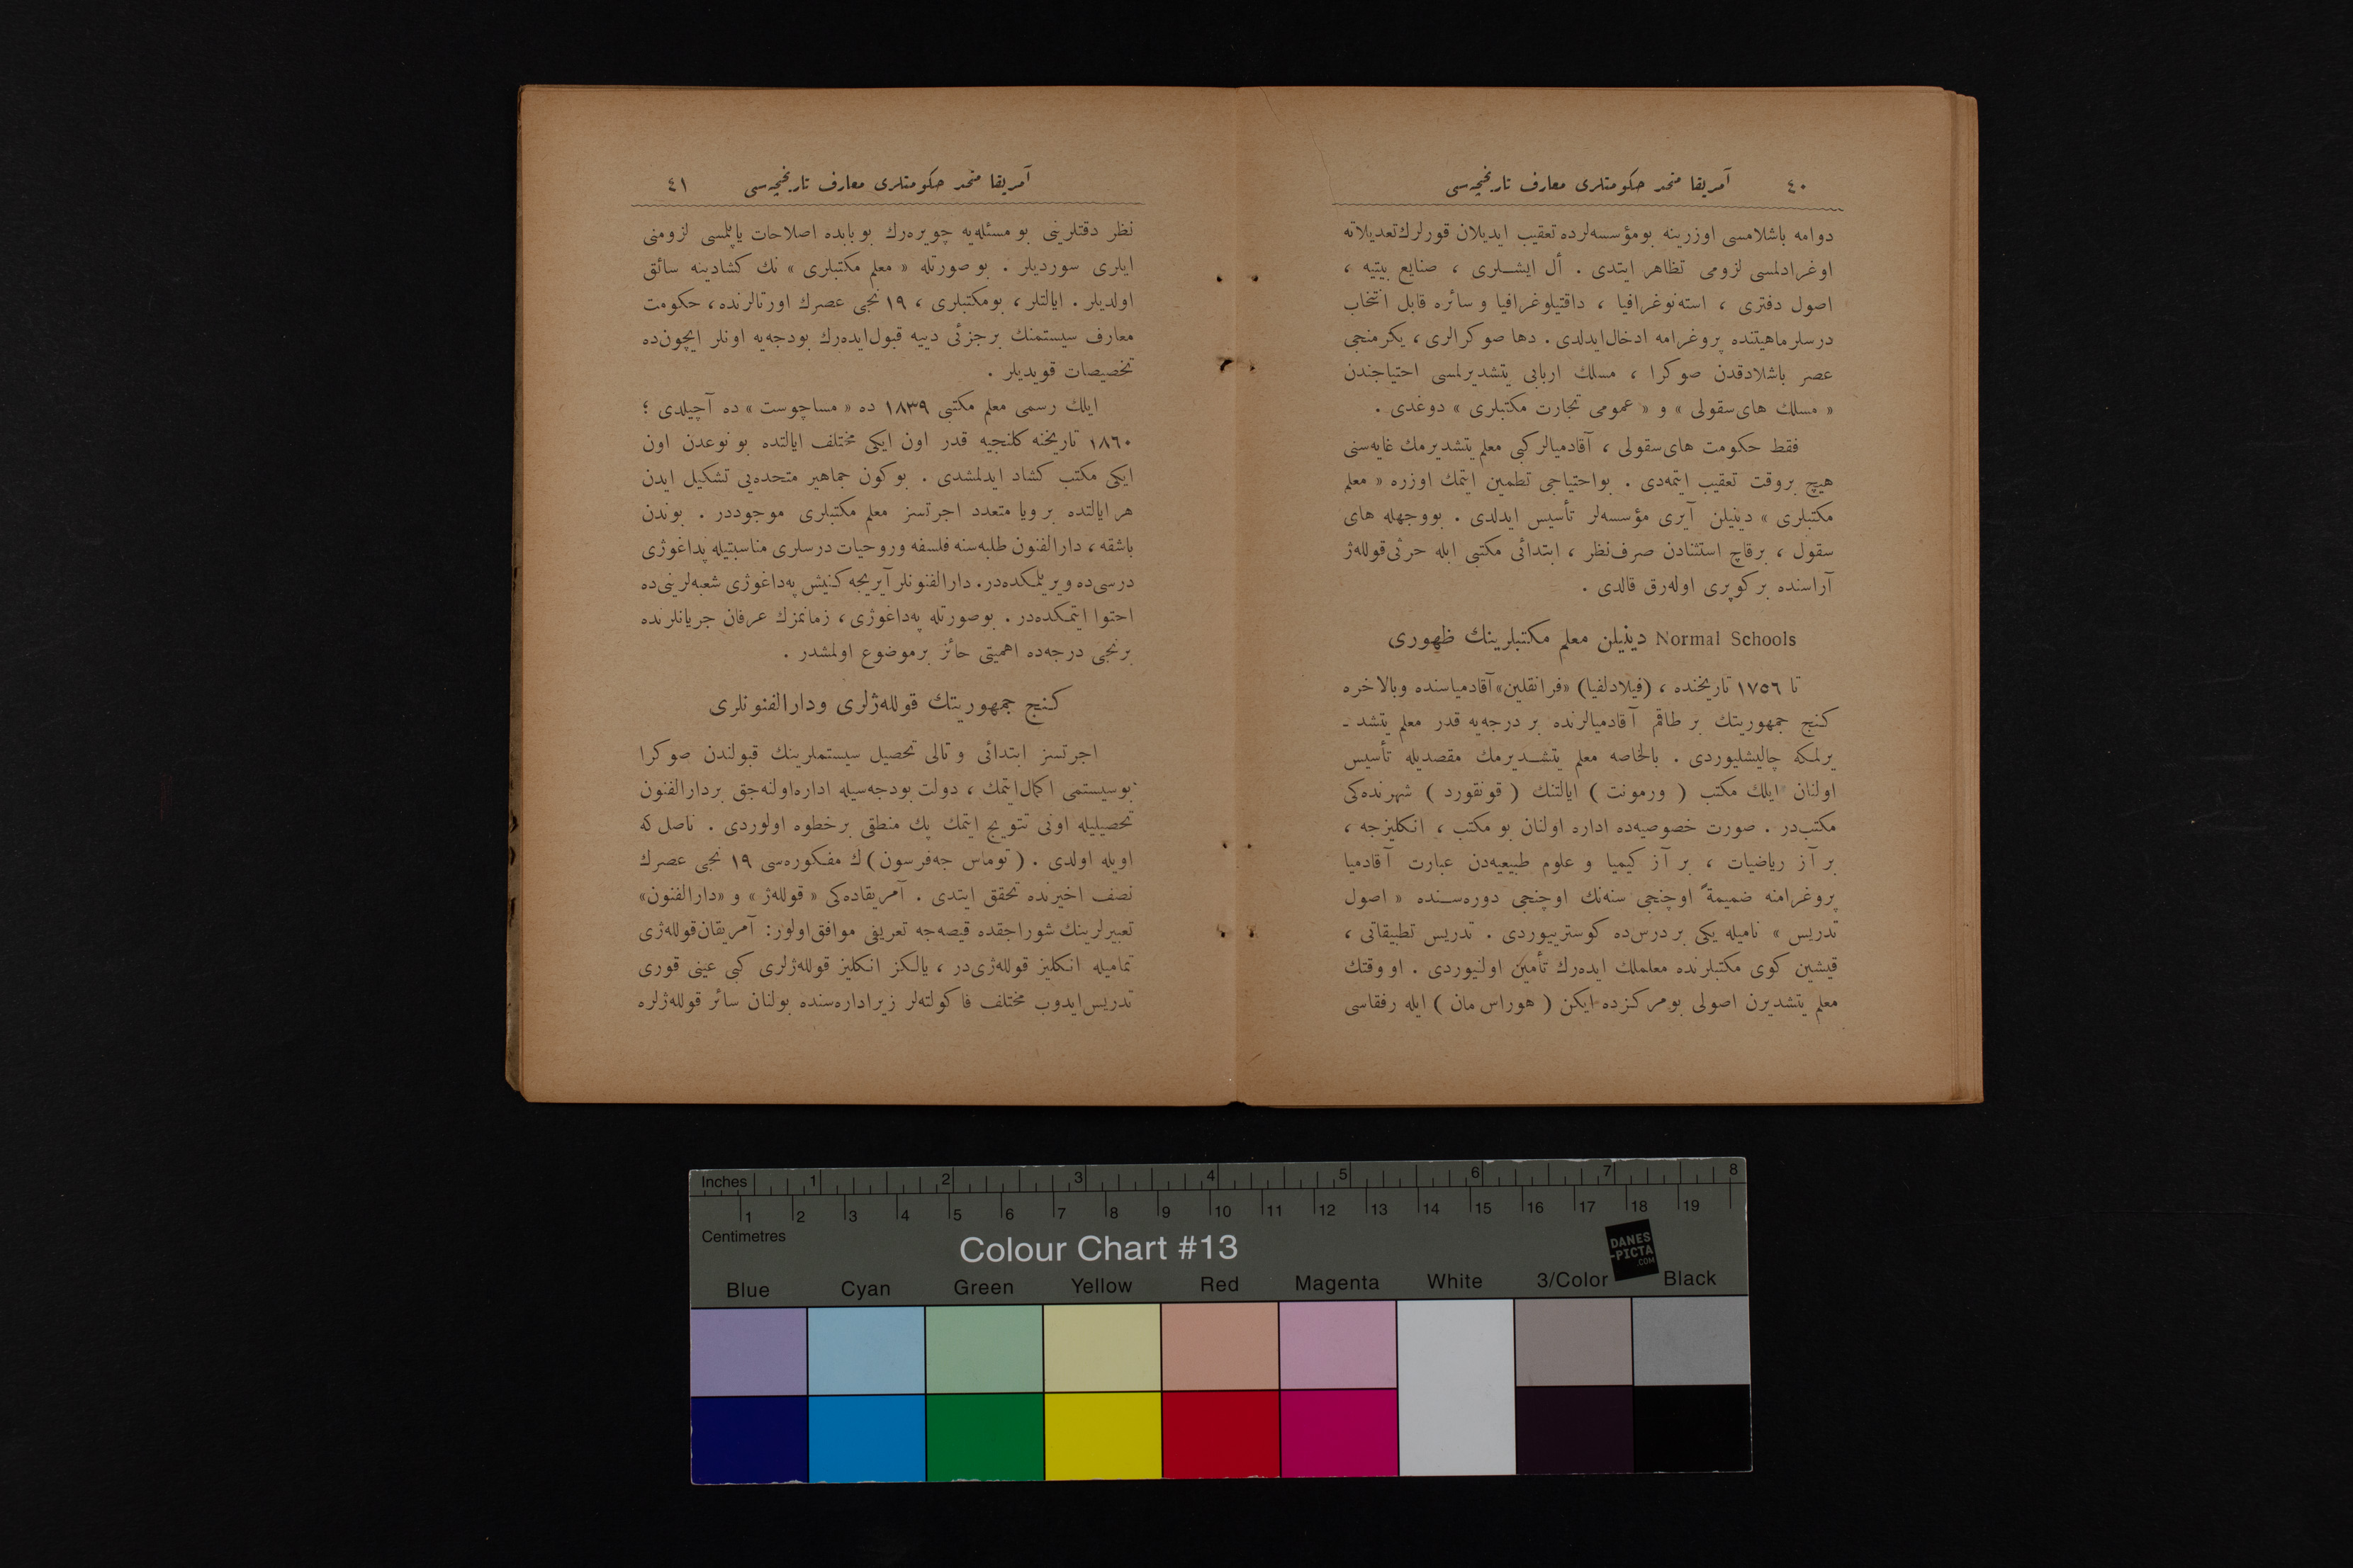 ٤٠ آمریقا متحد حکومتلری معارف تاریخچه‌سی
دوامه باشلامسی اوزرینه بومؤسسه‌لرده تعقیب ایدیلان قورلرك تعدیلاته
اوغرادلمسی لزومی تظاهر ایتدی . أل ایشـلری ، صنایع بیتیه ،
اصول دفتری ، استه‌نوغرافیا ، داقتیلوغرافیا و سائره قابل انتخاب
درسلر ماهیتنده پروغرامه ادخال ایدلدی . دها صوکرالری ، یکرمنجی
عصر باشلادقدن صوکرا ، مسلك اربابی یتشدیرلمسی احتیاجندن
« مسلك های سقولی » و « عمومی تجارت مکتبلری » دوغدی .
فقط حکومت های سقولی ، آقادمیالر کبی معلم یتشدیرمك غایه‌سنی
هیچ بروقت تعقیب ایتمه‌دی . بواحتیاجی تطمین ایتمك اوزره « معلم
مکتبلری » دینیلن آیری مؤسسه‌لر تأسیس ایدلدی . بووجهله های
سقول ، برقاچ استثنادن صرف‌نظر ، ابتدائی مکتبی ایله حرثی قولله‌ژ
آراسنده بر کوپری اوله‌رق قالدی .
Normal Schools دینیلن معلم مکتبلرینك ظهوری
تا ١٧٥٦ تاریخنده ، (فیلادلفیا) «فرانقلین» آقادمیاسنده وبالاخره
کنج جمهوریتك بر طاقم آقادمیالرنده بر درجه‌یه قدر معلم یتشد ـ
یرلمکه چالیشلیوردی . بالخاصه معلم یتشـدیرمك مقصدیله تأسیس
اولنان ایلك مکتب ( ورمونت ) ایالتنك ( قونقورد ) شهرنده‌کی
مکتب‌در . صورت خصوصیه‌ده اداره اولنان بو مکتب ، انکلیزجه ،
بر آز ریاضیات ، بر آز کیمیا و علوم طبیعیه‌دن عبارت آقادمیا
پروغرامنه ضمیمةً اوچنجی سنه‌نك اوچنجی دوره‌سـنده « اصول
تدریس » نامیله یکی بر درس‌ده کوستریبوردی . تدریس تطبیقاتی ،
قیشین کوی مکتبلرنده معلملك ایده‌رك تأمین اولنیوردی . او وقتك
معلم یتشدیرن اصولی بومرکزده ایکن ( هوراس مان ) ایله رفقاسی
آمریقا متحد حکومتلری معارف تاریخچه‌سی ٤١
نظر دقتلرینی بو مسئله‌یه چویره‌رك بو بابده اصلاحات یاپلمسی لزومنی
ایلری سوردیلر . بو صورتله « معلم مکتبلری » نك کشادینه سائق
اولدیلر . ایالتلر ، بومکتبلری ، ١٩ نجی عصرك اورتالرنده ، حکومت
معارف سیستمنك برجزئی دییه قبول ایده‌رك بودجه‌یه اونلر ایچون‌ده
تخصیصات قویدیلر .
ایلك رسمی معلم مکتبی ١٨٣٩ ده « مساچوست » ده آچیلدی ؛
١٨٦٠ تاریخنه کلنجیه قدر اون ایکی مختلف ایالتده بو نوعدن اون
ایکی مکتب کشاد ایدلمشدی . بو کون جماهیر متحده‌یی تشکیل ایدن
هر ایالتده بر ویا متعدد اجرتسز معلم مکتبلری موجوددر . بوندن
باشقه ، دارالفنون طلبه‌سنه فلسفه وروحیات درسلری مناسبتیله پداغوژی
درسی‌ده ویریلمکده‌در . دارالفنونلر آیریجه کنیش په‌داغوژی شعبه‌لرینی‌ده
احتوا ایتمکده‌در . بوصورتله په‌داغوژی ، زمانمزك عرفان جریانلرنده
برنجی درجه‌ده اهمیتی حائز برموضوع اولمشدر .
کنج جمهوریتك قولله‌ژلری ودارالفنونلری
اجرتسز ابتدائی و تالی تحصیل سیستملرینك قبولندن صوکرا
بوسیستمی اکمال ایتمك ، دولت بودجه‌سیله اداره اولنه‌جق بردارالفنون
تحصیلیله اونی تتویج ایتمك پك منطقی برخطوه اولوردی . ناصل که
اویله اولدی . ( توماس جه‌فرسون ) ك مفکوره‌سی ١٩ نجی عصرك
نصف اخیرنده تحقق ایتدی . آمریقاده‌کی « قولله‌ژ » و «دارالفنون»
تعبیرلرینك شوراجقده قیصه‌جه تعریفی موافق اولور : آمریقان قولله‌ژی
تمامیله انکلیز قولله‌ژی‌در ، یالکز انکلیز قولله‌ژلری کبی عینی قوری
تدریس ایدوب مختلف فاکولته‌لر زیر اداره‌سنده بولنان سائر قولله‌ژلره
Inches 1 2 3 4 5 6 7 8
1 2 3 4 5 6 7 8 9 10 11 12 13 14 15 16 17 18 19
Centimetres
Colour Chart #13
DANES
-PICTA
.COM
Blue Cyan Green Yellow Red Magenta White 3/Color Black